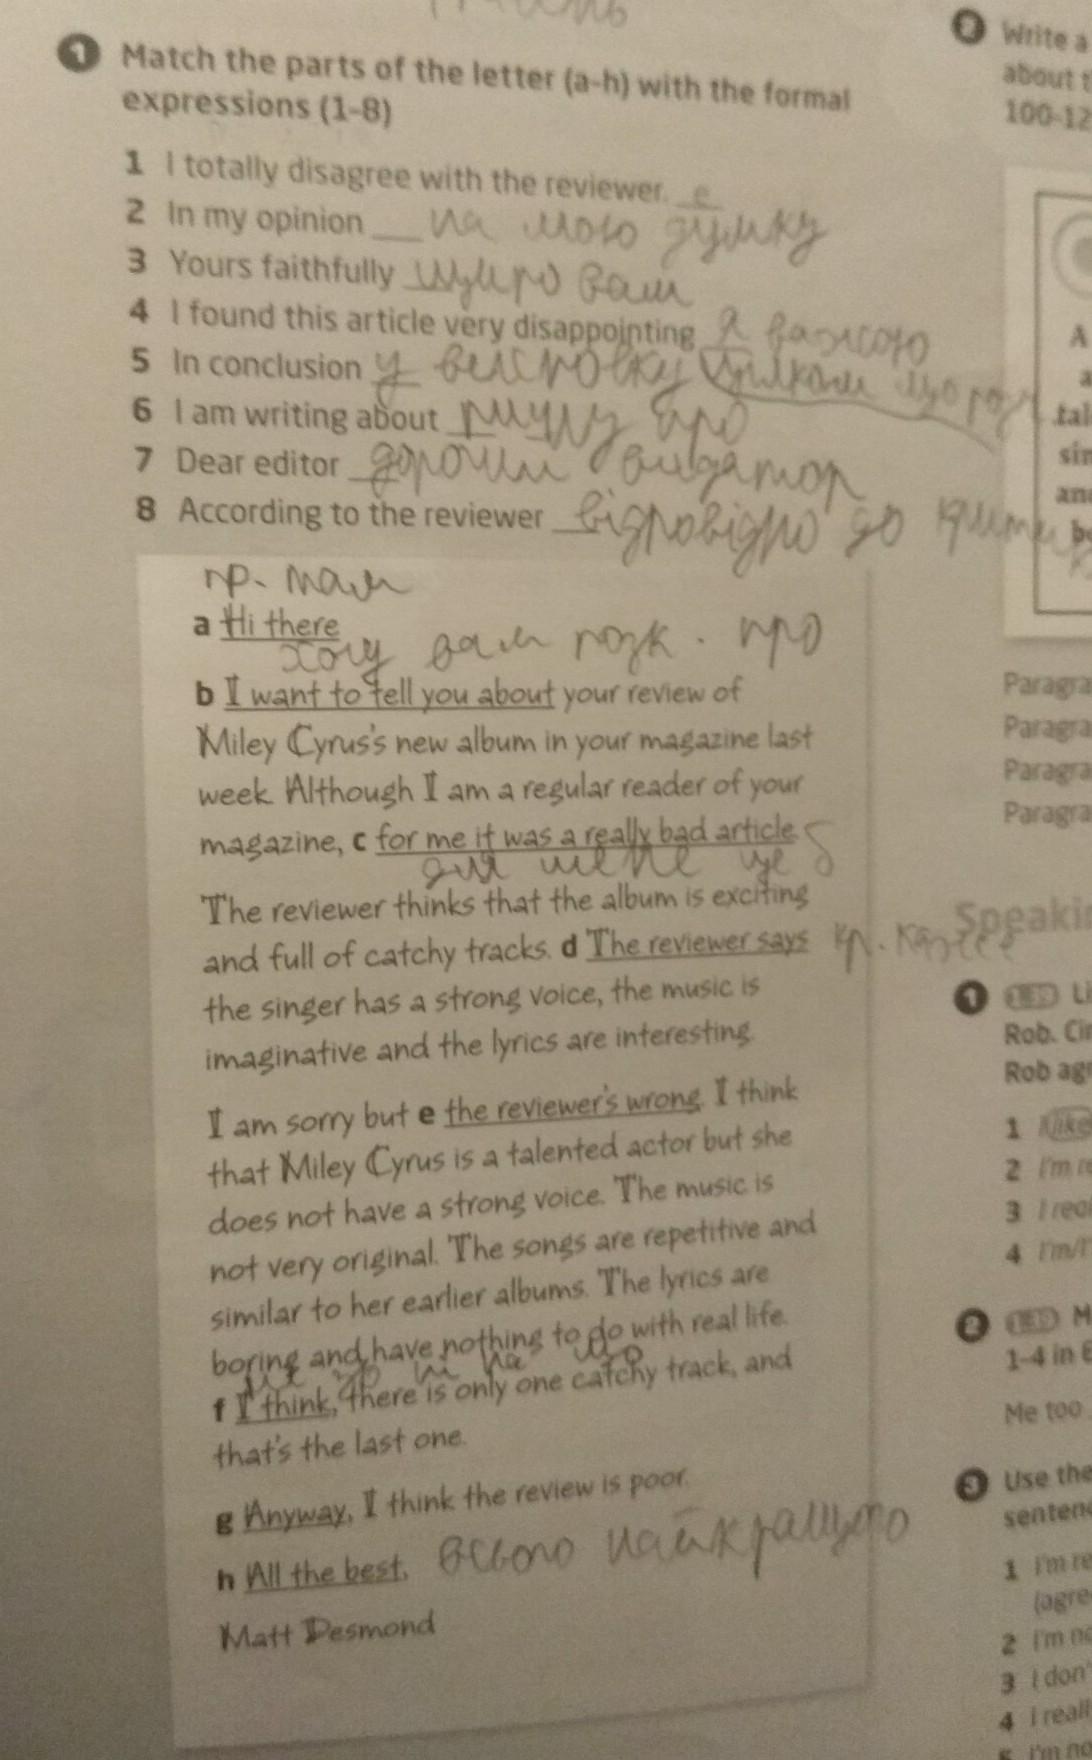 1 Match the parts of the letter (a-h) with the formal
expressions (1-8)
1 I totally disagree with the reviewer. e
2 In my opinion __ на мою думку
3 Yours faithfully щиро ваш
4 I found this article very disappointing я вважаю
5 In conclusion у
6 I am writing about пишу про
7 Dear editor
8 According to the reviewer до
a Hi there
хочу вам розк. про
b I want to tell you about your review of
Miley Cyrus's new album in your magazine last
week. Although I am a regular reader of your
magazine, c for me it was a really bad article.
для мене це
The reviewer thinks that the album is exciting
and full of catchy tracks. d The reviewer says кр. каже
the singer has a strong voice, the music is
imaginative and the lyrics are interesting.
I am sorry but e the reviewer's wrong. I think
that Miley Cyrus is a talented actor but she
does not have a strong voice. The music is
not very original. The songs are repetitive and
similar to her earlier albums. The lyrics are
boring and have nothing to do with real life.
f I think, there is only one catchy track, and
that's the last one.
g Anyway, I think the review is poor.
h All the best, всього найкращого
Matt Desmond
2 Write a
about
100-12
A
a
sin
an
Paragra
Paragra
Paragra
Paragra
Speakin
1 Li
Rob. Cir
Rob agr
1 I like
2 I'm re
3 I real
4 I'm/I'
2 M
1-4 in E
Me too
3 Use the
senten
1 I'm re
(agre
2 I'm no
3 I don'
4 I reall